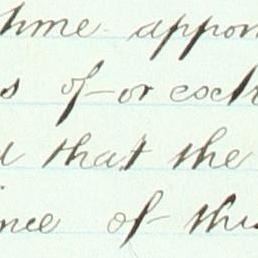 time appoin
s of - or extr
d that the
ince of this